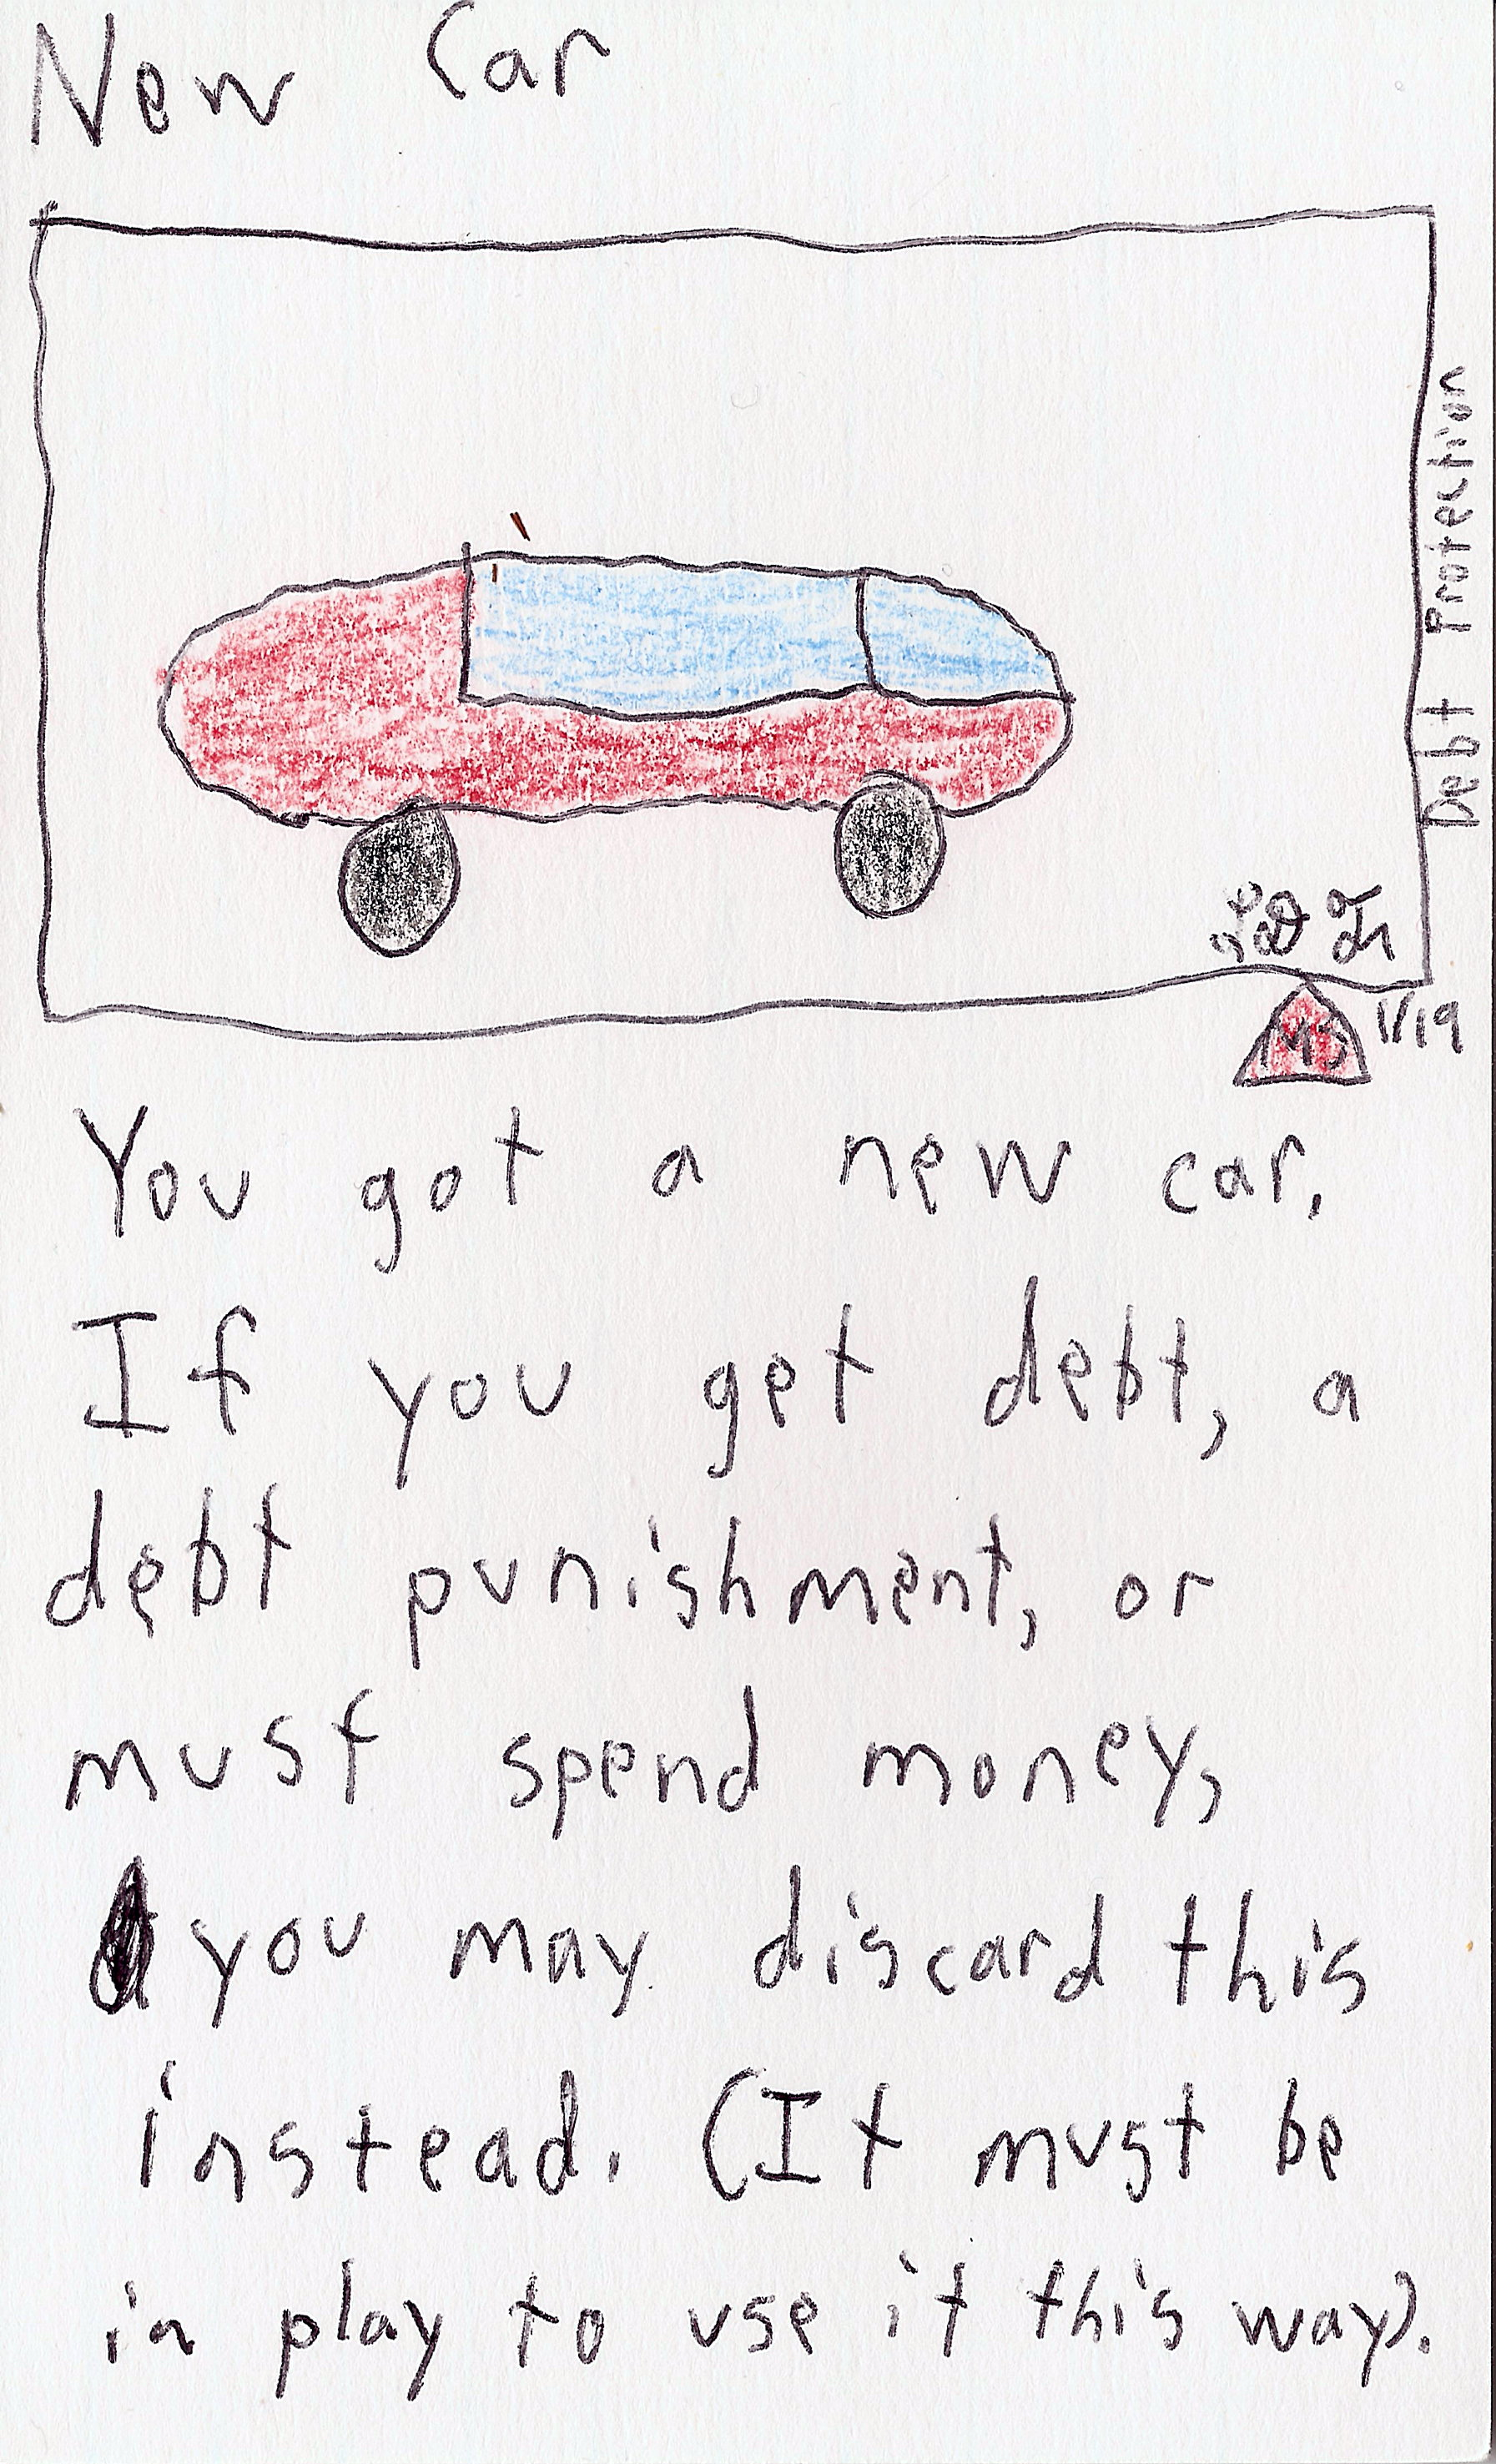 New Car
Debt Protection
1/19
You got a new car.
If you get debt, a
debt punishment, or
must spend money,
you may discard this
instead. (It must be
in play to use it this way).